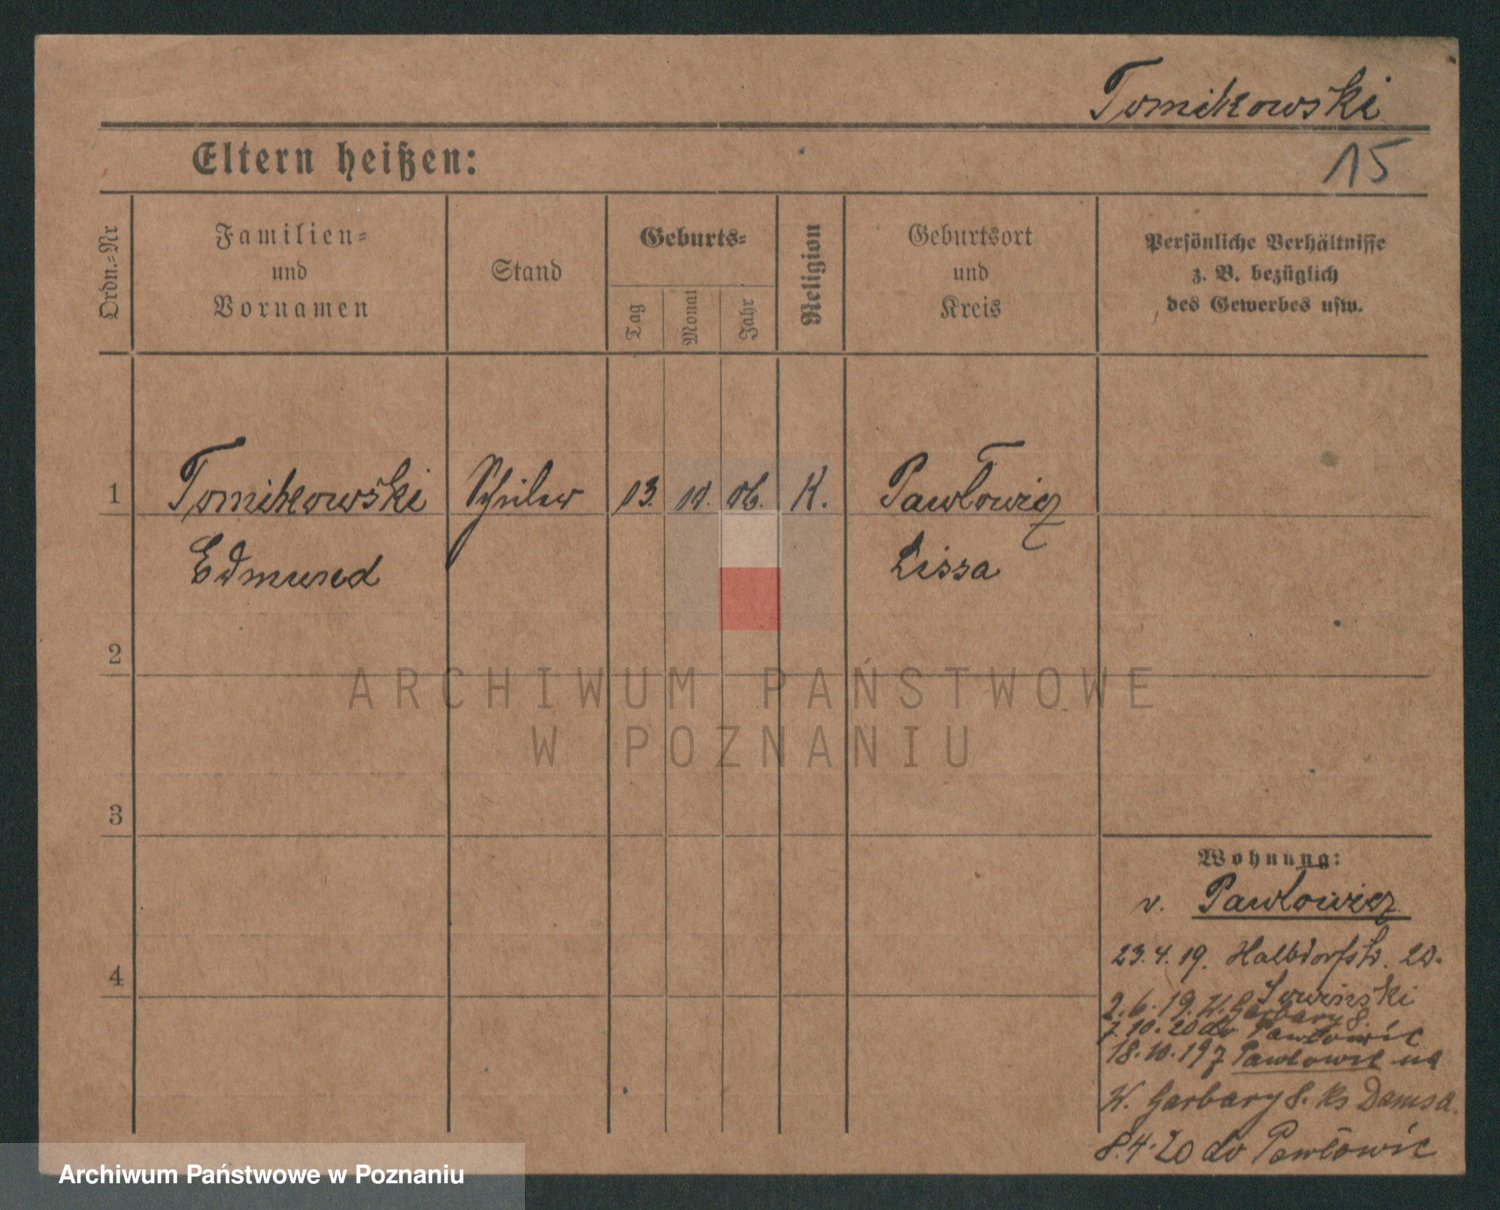 Tomikowski
Eltern heißen:
15
Ordn.=Nr
Familien=
und
Vornamen
Stand
Geburts=
Tag
Monat
Jahr
Religion
Geburtsort
und
Kreis
Persönliche Verhältnisse
z. B. bezüglich
des Gewerbes usw.
1
Tomikowski
Edmund
Schüler
13.
10.
06.
K.
Pawłowicz
Lissa
2
3
4
Wohnung:
v. Pawłowicz
23.4.19. Halbdorfstr. 20.
2.6.19. W. Garbary 8
7.10.20 do Pawłowic
18.10.19 z Pawłowic na
W. Garbary 8. Ks Damsa.
8.4.20 do Pawłowic
ARCHIWUM PAŃSTWOWE
W POZNANIU
Archiwum Państwowe w Poznaniu